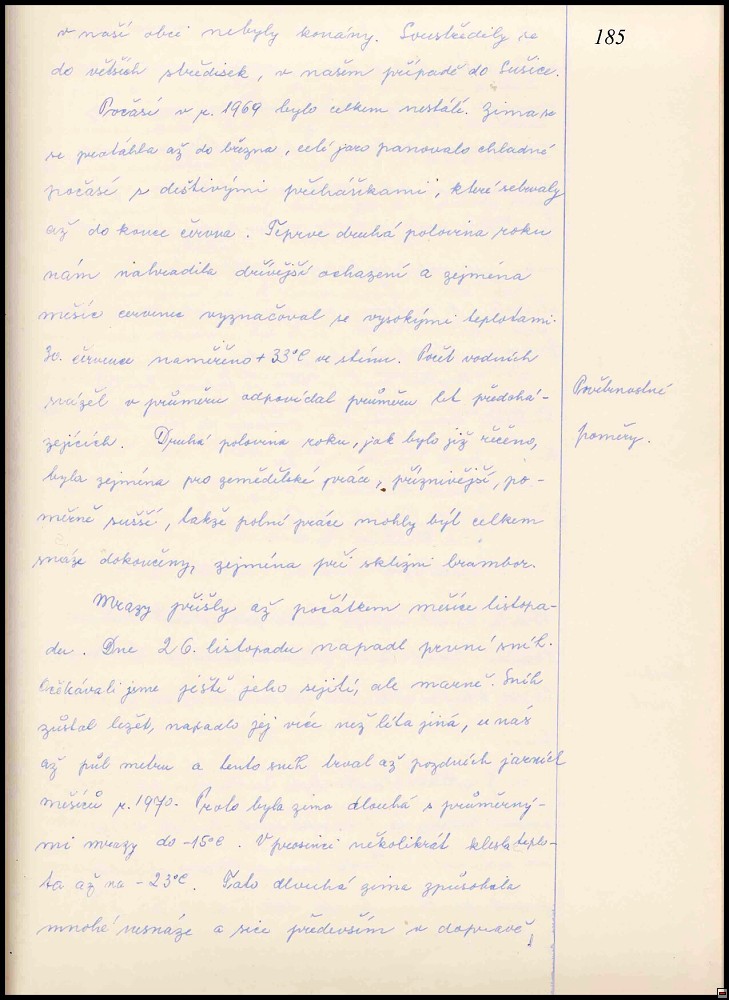 185
v naší obci nebyly konány. Soustředily se
do větších středisek, v našem případě do Sušice.
Počasí v r. 1969 bylo celkem nestálé. Zima se
se protáhla až do března, celé jaro panovalo chladné
počasí s deštivými přeháňkami, které setrvaly
až do konce června. Teprve druhá polovina roku
nám nahradila dřívější ochazení a zejména
měsíc červenec vyznačoval se vysokými teplotami.
30. července naměřeno + 33°C ve stínu. Počet vodních
srážek v průměru odpovídal průměru let předchá-
zejících. Druhá polovina roku, jak bylo již řečeno,
byla zejména pro zemědělské práce, příznivější, po-
měrně sušší, takže polní práce mohly být celkem
snáze dokončeny, zejména při sklizni brambor.
Povětrnostné
poměry.
Mrazy přišly až počátkem měsíce listopa-
du. Dne 26. listopadu napadl první sníh.
Očekávali jsme ještě jeho sejití, ale marně. Sníh
zůstal ležet, napadlo jej více než léta jiná, u nás
až půl metru a tento sníh trval až pozdních jarních
měsíců r. 1970. Proto byla zima dlouhá s průměrný-
mi mrazy do -15°C. V prosinci několikrát klesla teplo-
ta až na -23°C. Tato dlouhá zima způsobila
mnohé nesnáze a sice především v dopravě,